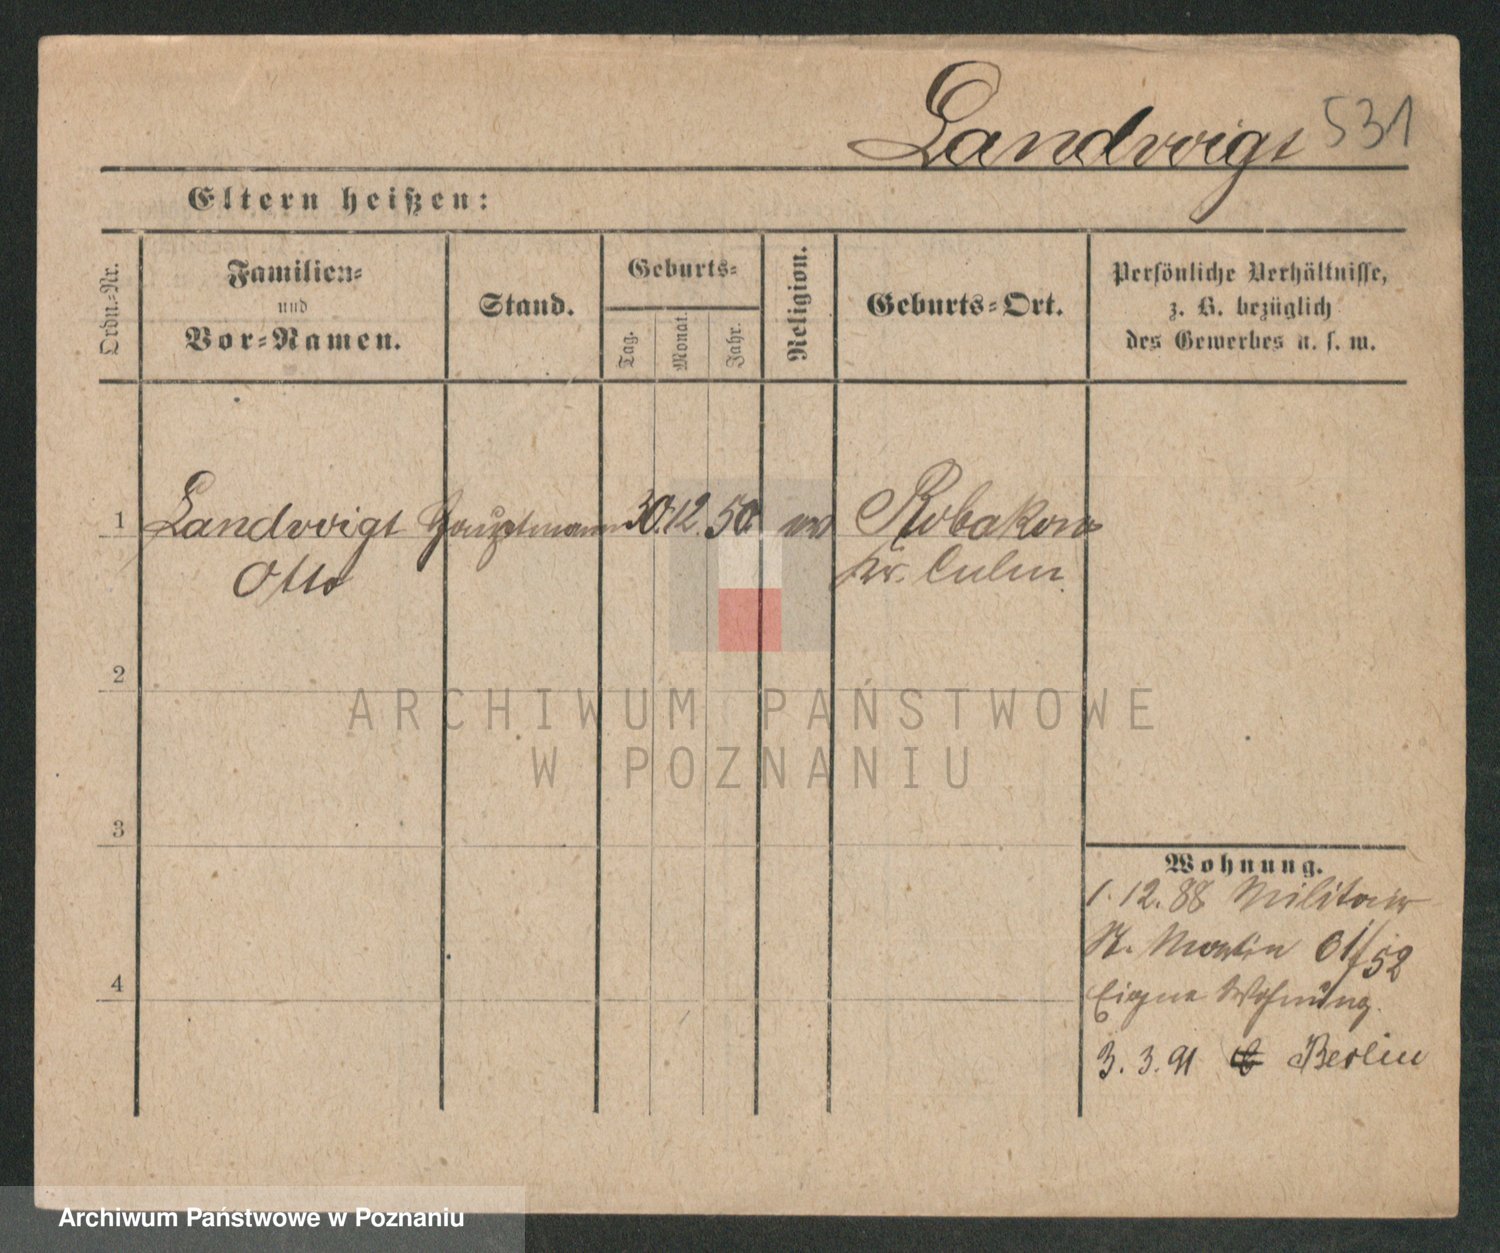 Landvoigt 531
Eltern heißen:
Ordn.-Nr.
Familien-
und
Vor-Namen.
Stand.
Geburts-
Tag.
Monat.
Jahr.
Religion.
Geburts-Ort.
Persönliche Verhältnisse,
z. B. bezüglich
des Gewerbes u. s. w.
1 Landvoigt Hauptmann 30. 12. 50. ev Robakow
Otto Kr. Culm
2
ARCHIWUM PAŃSTWOWE
W POZNANIU
3
Wohnung.
1. 12. 88 Militair
St. Martin 61/52
4
Eigne Wohnung.
3. 3. 91 Berlin
Archiwum Państwowe w Poznaniu